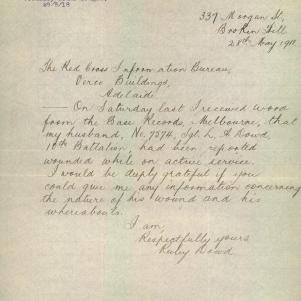 29/5/18
337 Morgan St,
Broken Hill
28th May 1918.
The Red Cross Information Bureau,
Verco Buildings,
Adelaide
On Saturday last I received word
from the Base Records, Melbourne, that
my husband, No. 7374, Sgt L. A Dowd,
10th Battalion, had been reported
wounded while on active service.
I would be deeply grateful if you
could give me any information concerning
the nature of his wound and his
whereabouts.
I am,
Respectfully yours
Ruby Dowd